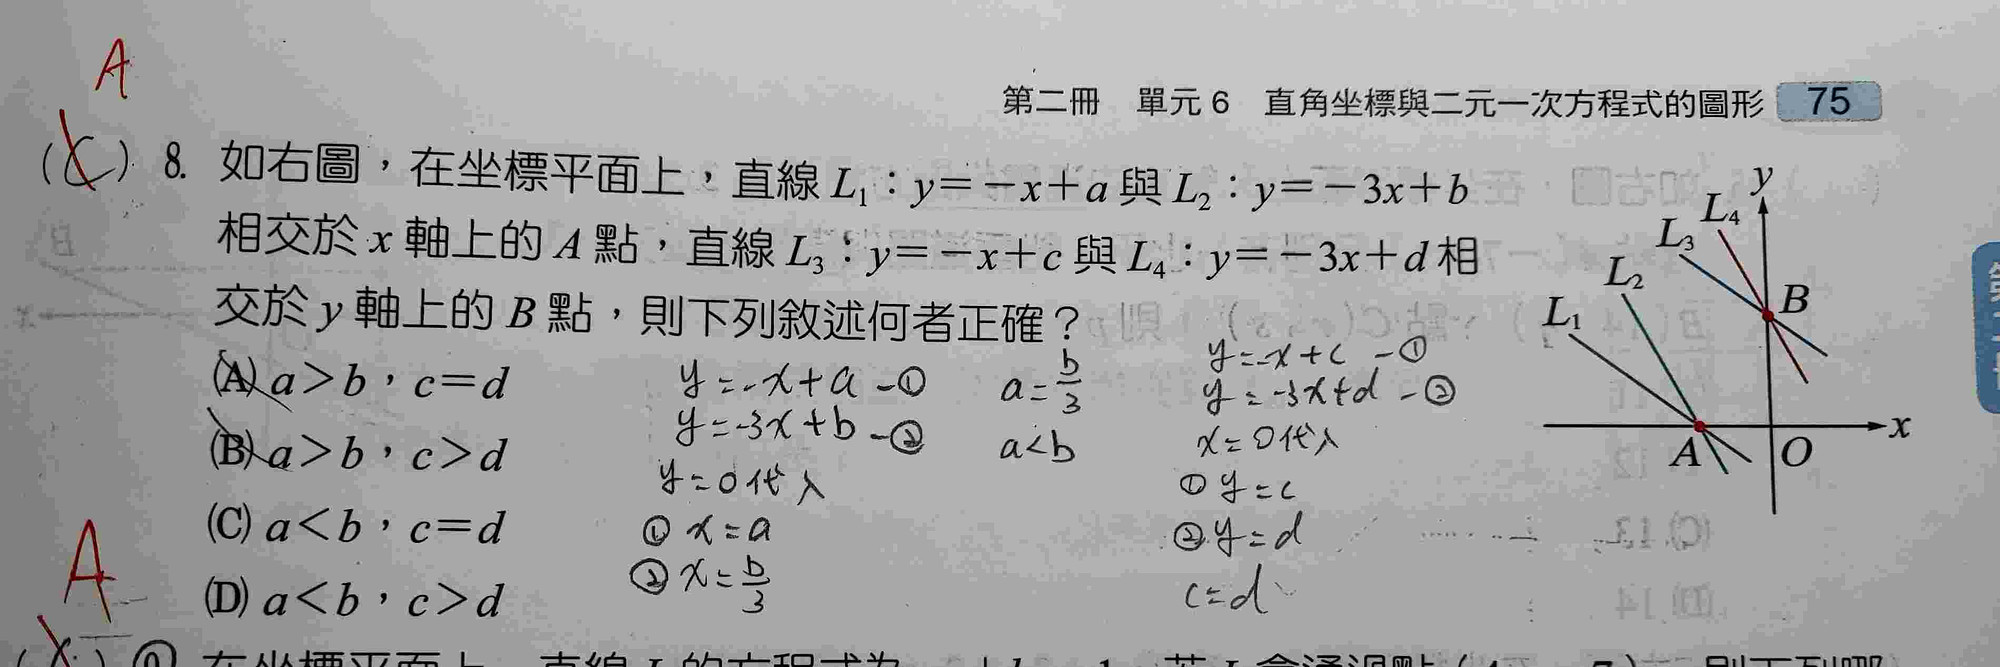 A
第二冊 單元6 直角坐標與二元一次方程式的圖形 75
(C) 8. 如右圖，在坐標平面上，直線 L₁：y＝－x＋a 與 L₂：y＝－3x＋b
相交於 x 軸上的 A 點，直線 L₃：y＝－x＋c 與 L₄：y＝－3x＋d 相
交於 y 軸上的 B 點，則下列敘述何者正確？
(A) a＞b，c＝d
(B) a＞b，c＞d
(C) a＜b，c＝d
(D) a＜b，c＞d
y=-x+a -①
y=-3x+b -②
y=0代入
① x=a
② x=b/3
a=b/3
a<b
y=-x+c -①
y=-3x+d -②
x=0代入
① y=c
② y=d
c=d
y
L₄
L₃
L₂
L₁
B
x
A
O
A